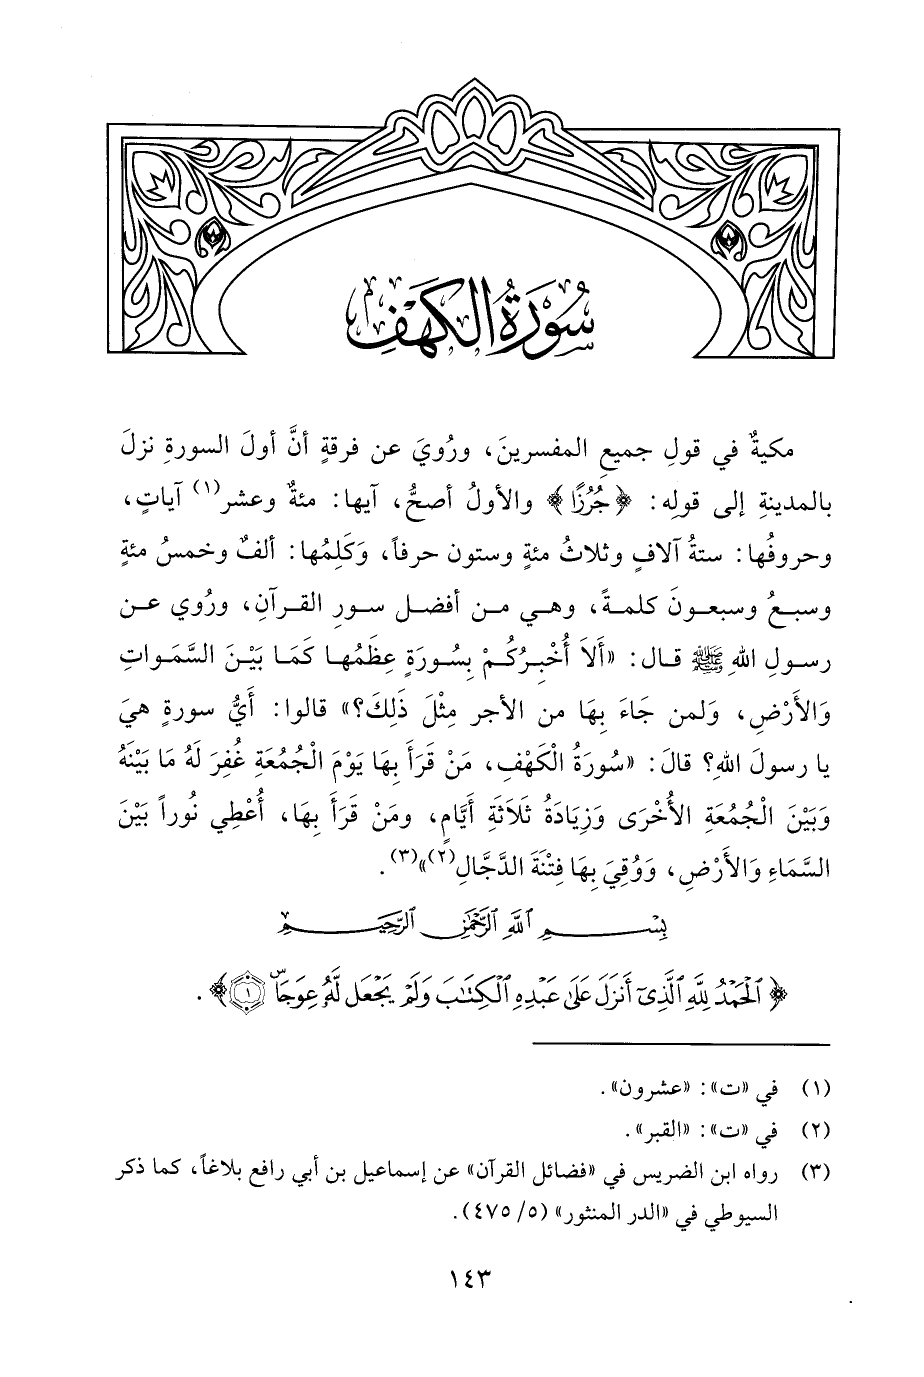 سُورَةُ الكَهْفِ
مكيةٌ في قولِ جميعِ المفسرينَ، ورُويَ عن فرقةٍ أنَّ أولَ السورةِ نزلَ
بالمدينةِ إلى قولِه: ﴿جُرُزًا﴾ والأولُ أصحُّ، آيها: مئةٌ وعشر(١) آياتٍ،
وحروفُها: ستةُ آلافٍ وثلاثُ مئةٍ وستون حرفاً، وَكَلِمُها: ألفٌ وخمسُ مئةٍ
وسبعُ وسبعونَ كلمةً، وهي من أفضل سورِ القرآنِ، ورُوي عن
رسولِ اللهِ ﷺ قال: «أَلاَ أُخْبِرُكُمْ بِسُورَةٍ عِظَمُها كَمَا بَيْنَ السَّمَواتِ
وَالأَرْضِ، وَلمن جَاءَ بِهَا من الأجر مِثْلَ ذَلِكَ؟» قالوا: أَيُّ سورةٍ هيَ
يا رسولَ اللهِ؟ قالَ: «سُورَةُ الْكَهْفِ، مَنْ قَرَأَ بِهَا يَوْمَ الْجُمُعَةِ غُفِرَ لَهُ مَا بَيْنَهُ
وَبَيْنَ الْجُمُعَةِ الأُخْرَى وَزِيَادَةُ ثَلاَثَةِ أَيَّامٍ، ومَنْ قَرَأَ بِهَا، أُعْطِي نُوراً بَيْنَ
السَّمَاءِ وَالأَرْضِ، وَوُقِيَ بِهَا فِتْنَةَ الدَّجَّالِ(٢)»(٣).
بِسْمِ ٱللَّهِ ٱلرَّحْمَٰنِ ٱلرَّحِيمِ
﴿ٱلْحَمْدُ لِلَّهِ ٱلَّذِىٓ أَنزَلَ عَلَىٰ عَبْدِهِ ٱلْكِتَٰبَ وَلَمْ يَجْعَل لَّهُۥ عِوَجَاۜ ١﴾.
(١) في «ت»: «عشرون».
(٢) في «ت»: «القبر».
(٣) رواه ابن الضريس في «فضائل القرآن» عن إسماعيل بن أبي رافع بلاغاً، كما ذكر
السيوطي في «الدر المنثور» (٥/ ٤٧٥).
١٤٣